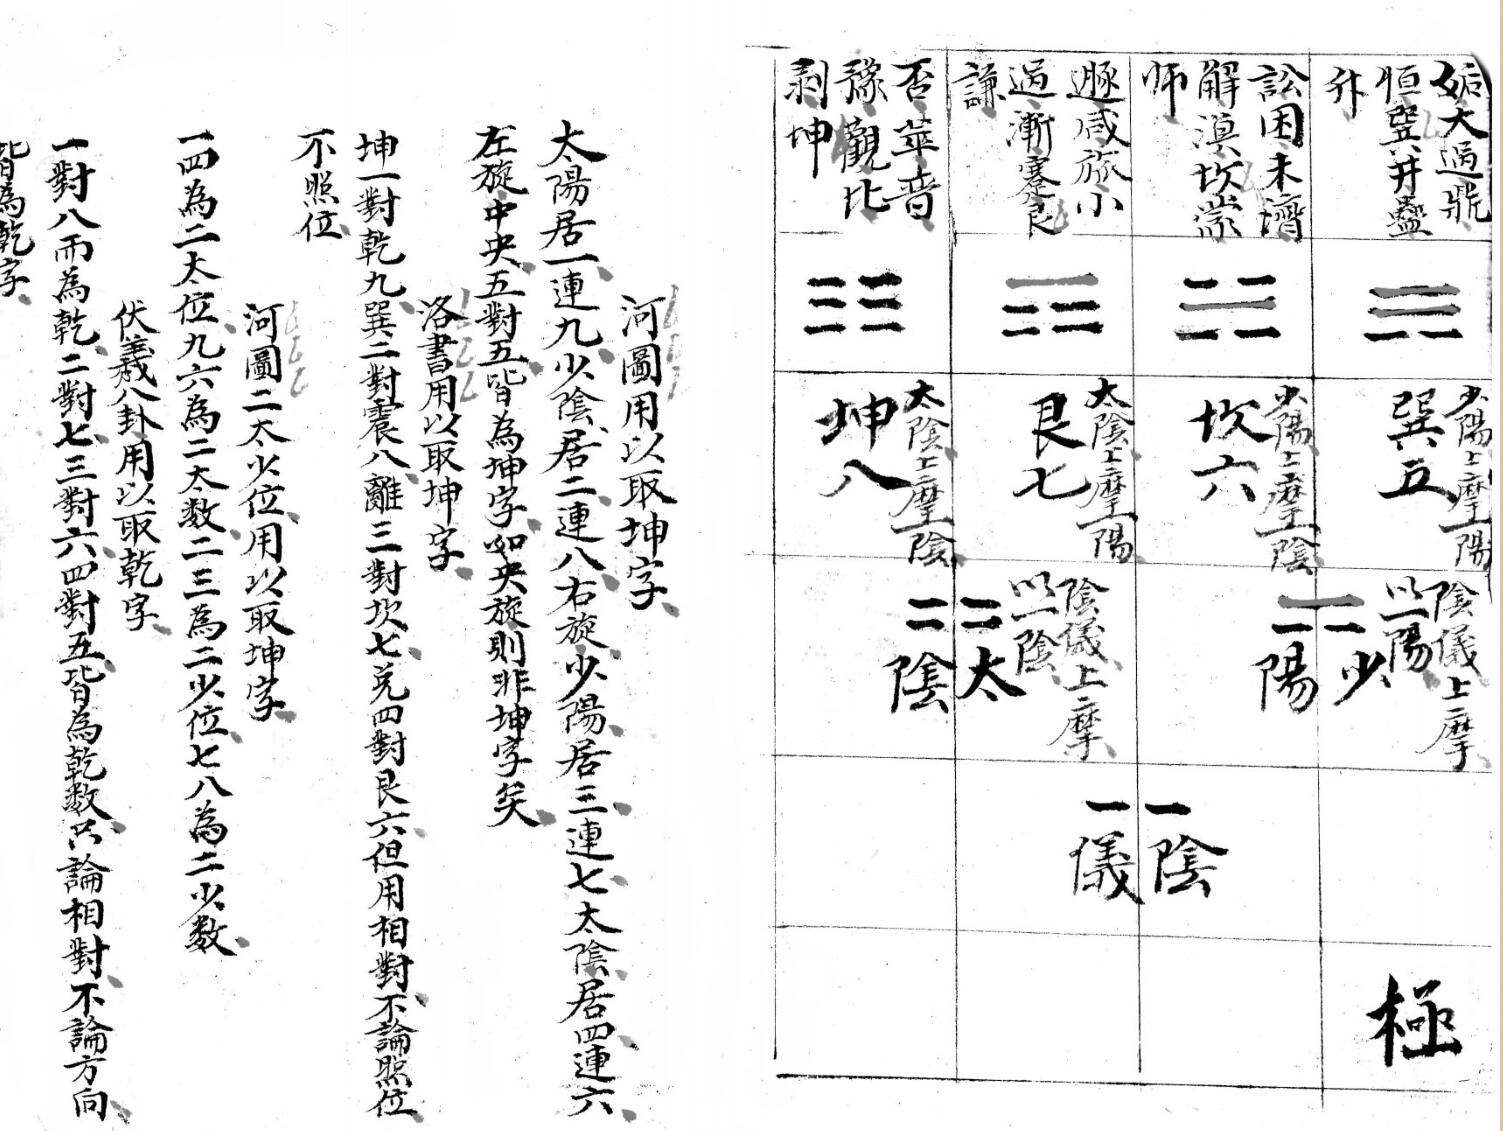 姤大過鼎
恒巽井蠱
升
訟困未濟
解渙坎蒙
师
遯咸旅小
過漸蹇艮
謙
否萃晋
豫觀比
剥坤
少陽上摩一陽
巽五
少陽上摩一陰
坎六
太陰上摩一陽
艮七
太陰上摩一陰
坤八
陰儀上摩
以一陽
少
陽
陰儀上摩
以一陰
太
陰
陰
儀
極
河圖用以取坤字
太陽居一連九少陰居二連八右旋少陽居三連七太陰居四連六
左旋中央五對五皆為坤字如央旋則非坤字矣
洛書用以取坤字
坤一對乾九巽二對震八離三對坎七兌四對艮六但用相對不論照位
不照位
河圖二太少位用以取坤字
一四為二太位九六為二太数二三為二少位七八為二少数
伏羲八卦用以取乾字
一對八而為乾二對七三對六四對五皆為乾数只論相對不論方向
皆為乾字